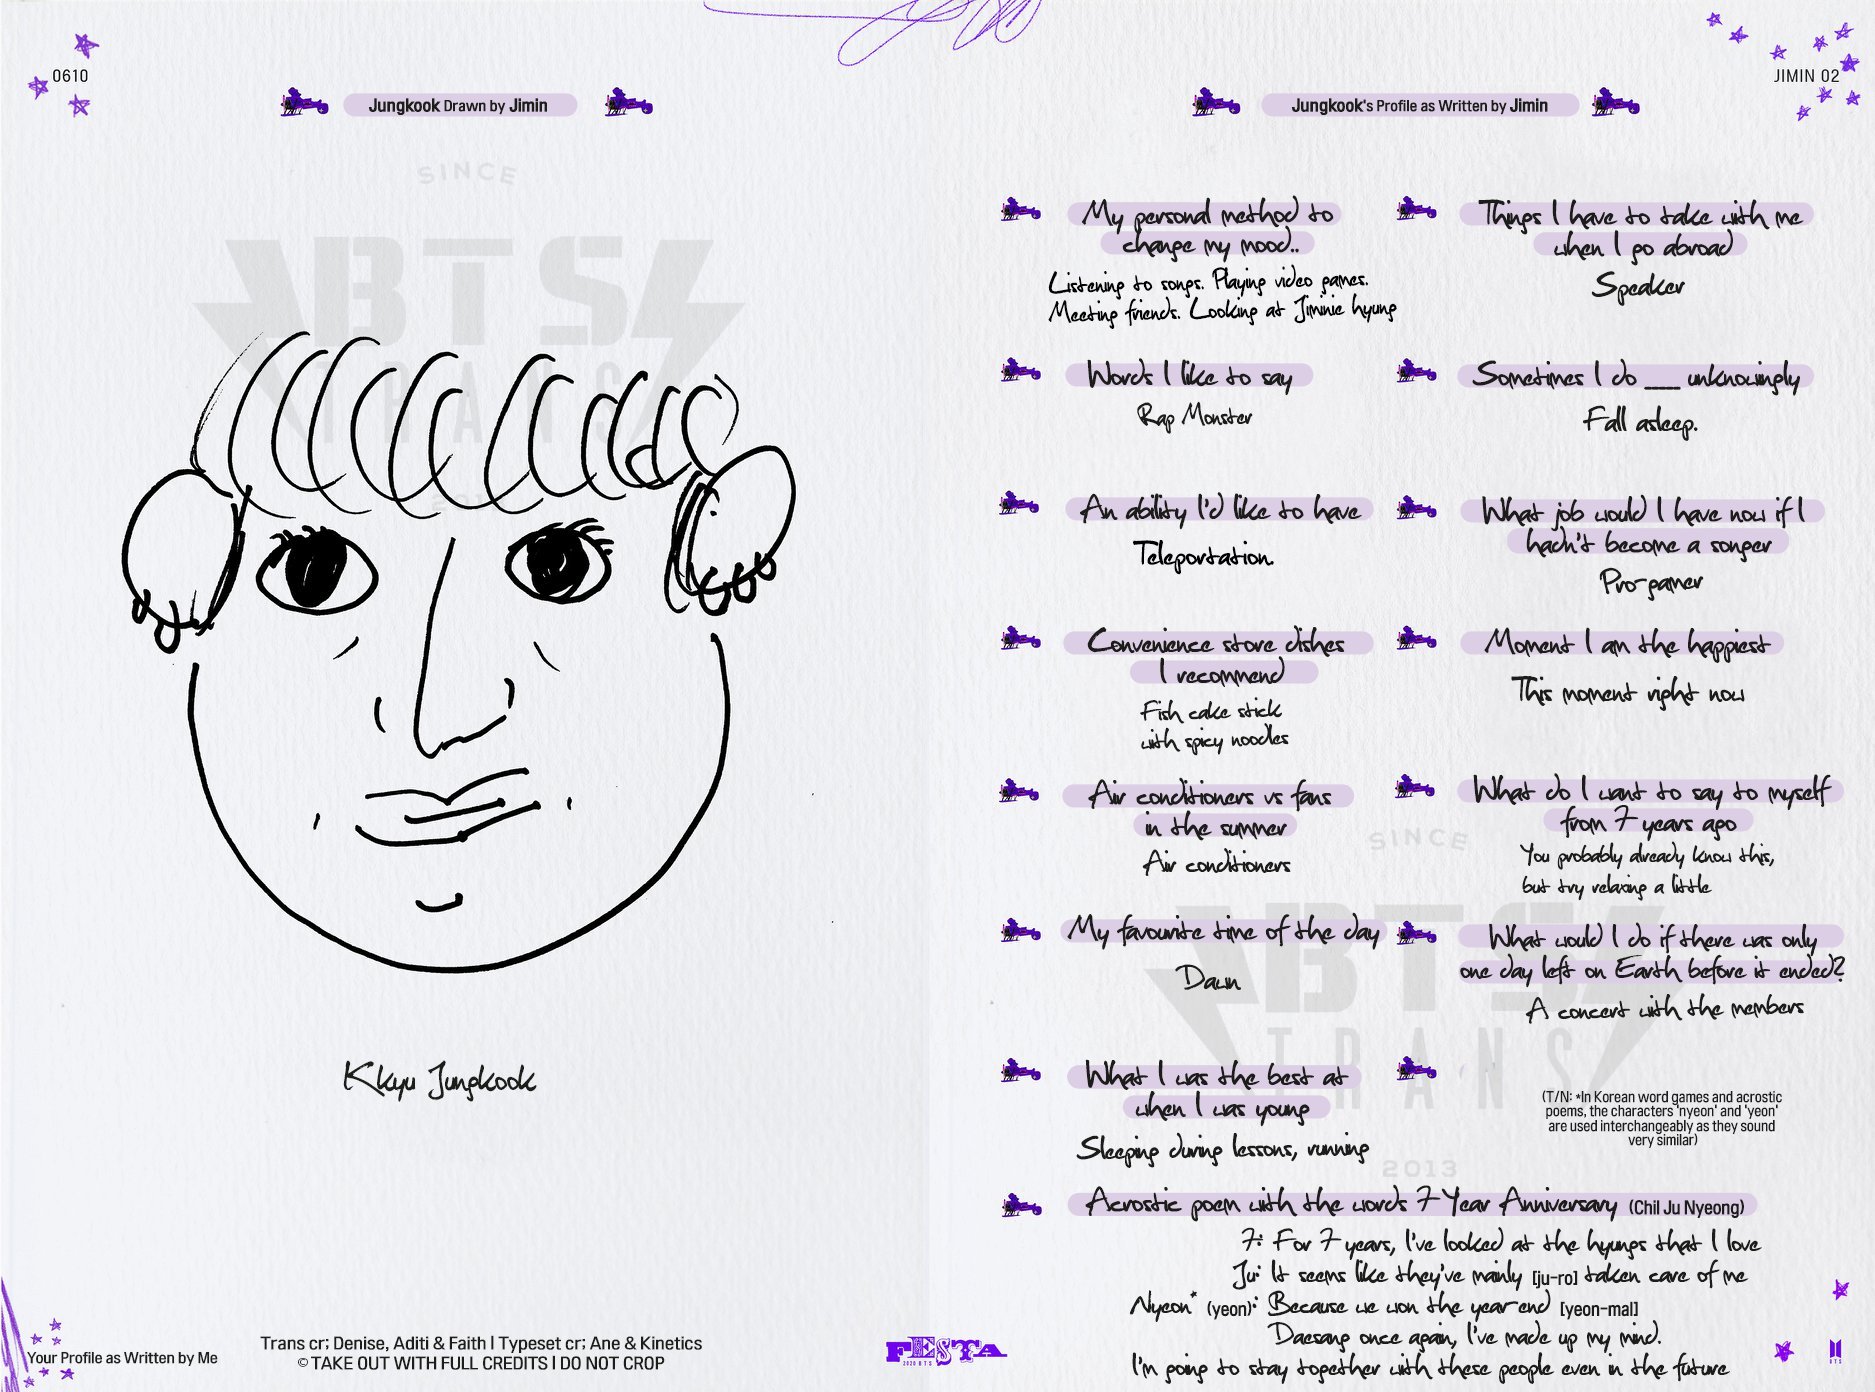 0610
Jungkook Drawn by Jimin
SINCE
BTS
TRANS
Kkyu Jungkook
Your Profile as Written by Me
Trans cr; Denise, Aditi & Faith | Typeset cr; Ane & Kinetics
© TAKE OUT WITH FULL CREDITS | DO NOT CROP
FESTA
2020 BTS
JIMIN 02
Jungkook's Profile as Written by Jimin
My personal method to
change my mood..
Listening to songs. Playing video games.
Meeting friends. Looking at Jiminie hyung
Things I have to take with me
when I go abroad
Speaker
Words I like to say
Rap Monster
Sometimes I do ___ unknowingly
Fall asleep.
An ability I'd like to have
Teleportation.
What job would I have now if I
hadn't become a songer
Pro-gamer
Convenience store dishes
I recommend
Fish cake stick
with spicy noodles
Moment I am the happiest
This moment right now
Air conditioners vs fans
in the summer
Air conditioners
What do I want to say to myself
from 7 years ago
You probably already know this,
but try relaxing a little
My favourite time of the day
Dawn
What would I do if there was only
one day left on Earth before it ended?
A concert with the members
What I was the best at
when I was young
Sleeping during lessons, running
(T/N: *In Korean word games and acrostic
poems, the characters 'nyeon' and 'yeon'
are used interchangeably as they sound
very similar)
SINCE
BTS
TRANS
2013
Acrostic poem with the words 7 Year Anniversary (Chil Ju Nyeong)
7: For 7 years, I've looked at the hyungs that I love
Ju: It seems like they've mainly [ju-ro] taken care of me
Nyeon* (yeon): Because we won the year-end [yeon-mal]
Daesang once again, I've made up my mind.
I'm going to stay together with these people even in the future
BTS